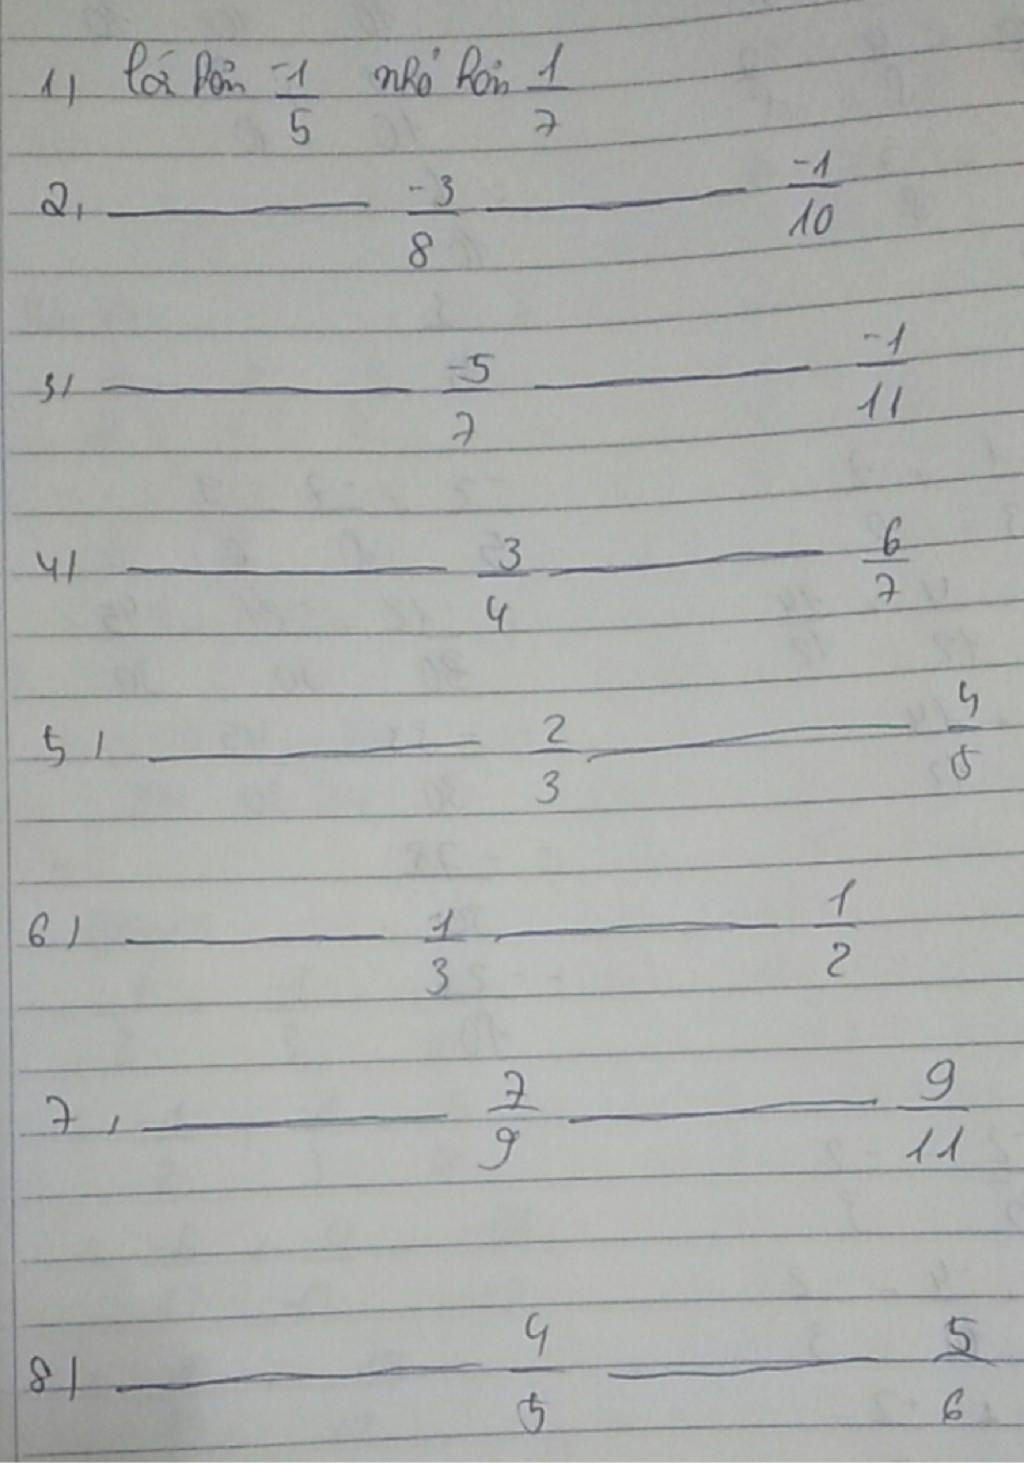 1) lớn hơn -1/5 nhỏ hơn 1/7
2, ——— -3/8 ——— -1/10
3) ——— -5/7 ——— -1/11
4) ——— 3/4 ——— 6/7
5) ——— 2/3 ——— 4/5
6) ——— 1/3 ——— 1/2
7, ——— 7/9 ——— 9/11
8) ——— 4/5 ——— 5/6